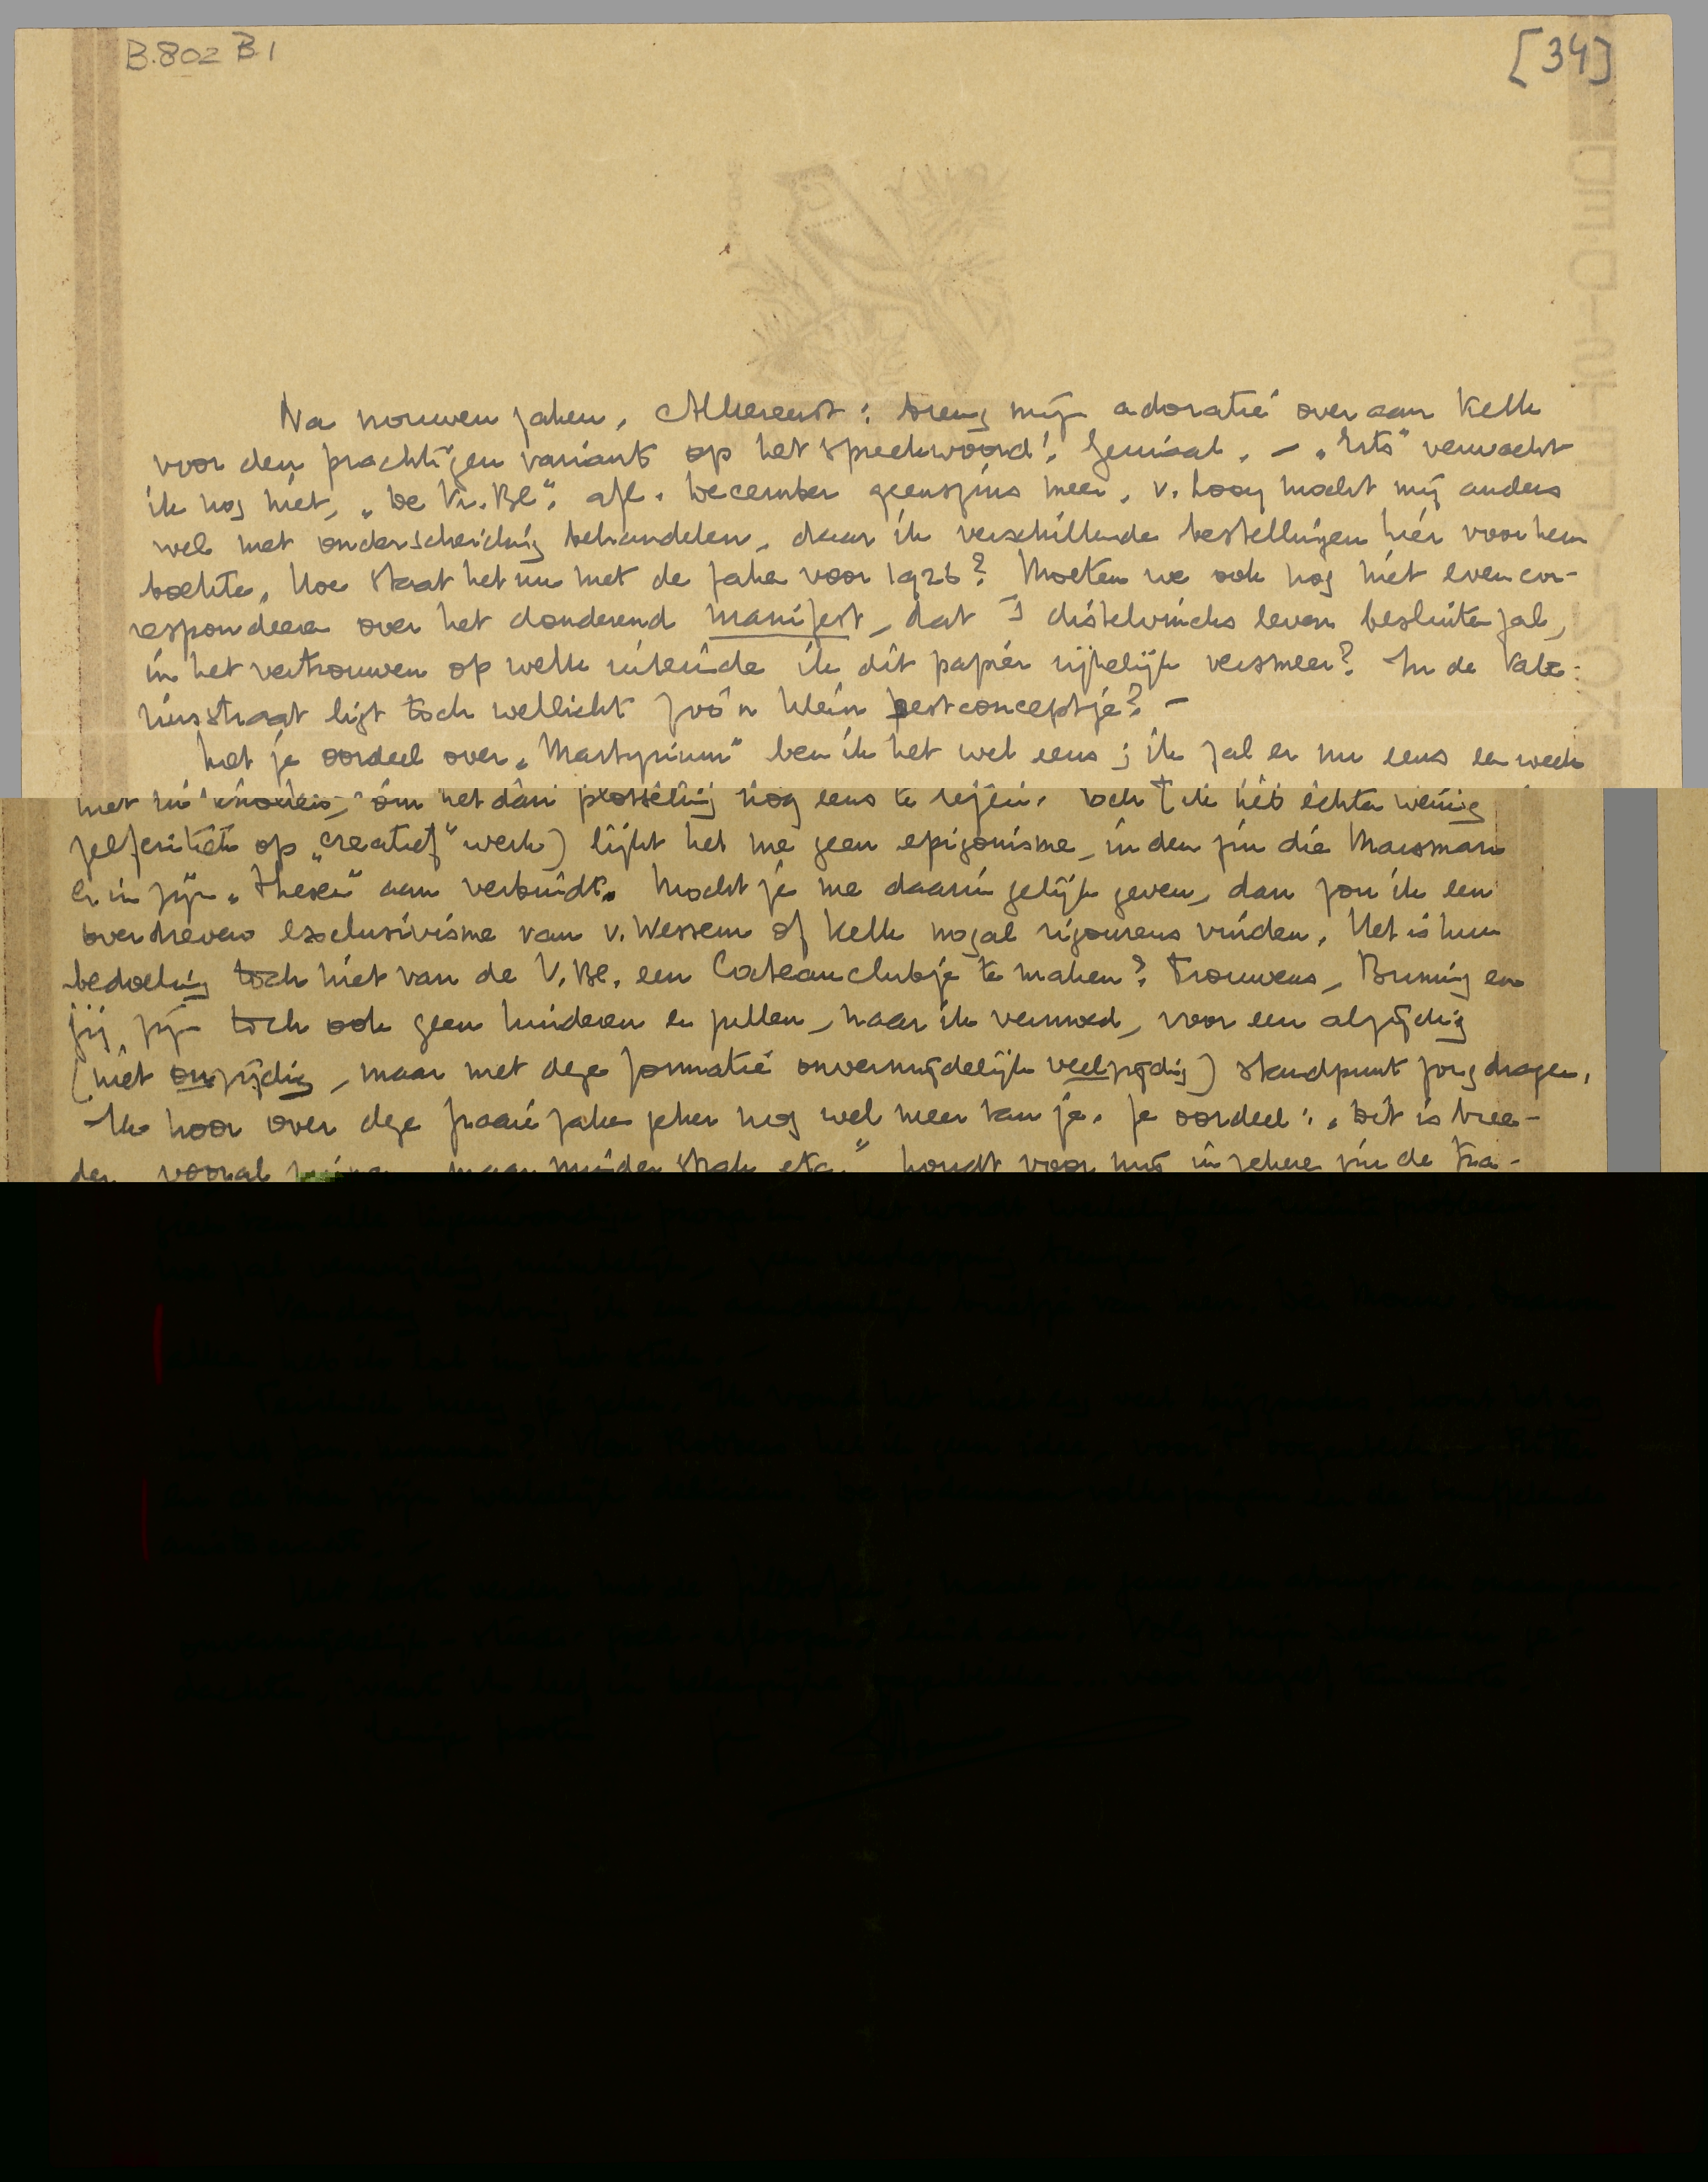 B.802 B.1
[34]
Na nouwen zaken, Allereerst: breng mijn adoratie over aan Kelk
voor den prachtigen variant op het spreekwoord! Geniaal. – „Erts” verwacht
ik nog niet, „De Vr. Bl.”, afl. December geenszins meer. v. Looy mocht mij anders
wel met onderscheiding behandelen, daar ik verschillende bestellingen hier voor hem
boekte. Hoe staat het nu met de zaken voor 1926? Moeten we ook nog niet even cor-
respondeeren over het donderend manifest, dat 's distelvincks leven besluiten zal,
in het vertrouwen op welk uiteinde ik dit papier rijkelijk versmeer? In de Vale-
riusstraat ligt toch wellicht zoo'n klein pestconceptje? –
Met je oordeel over „Martyrium” ben ik het wel eens; ik zal er nu eens een week
niet in om het dan plotseling nog eens te lezen. Toch (ik heb echter weinig
zelfkritiek op „creatief” werk) lijkt het me geen epigonisme, in den zin die Marsman
er in zijn „Thesen” aan verbindt. Mocht je me daarin gelijk geven, dan zou ik een
overdreven exclusivisme van v. Wessem of Kelk nogal rigoureus vinden. Het is hun
bedoeling toch niet van de V. Bl. een Cocteau clubje te maken? Trouwens, Buning en
jij zijn toch ook geen kinderen en zullen, naar ik vermoed, voor een alzijdig
(niet onzijdig, maar met deze formatie onvermijdelijk veelzijdig) standpunt zorg dragen.
Ik hoor over deze fraaie zaken zeker nog wel meer van je. Je oordeel: „Dit is bree-
der, vooral maar minder strak etc.” houdt voor mij in zekere zin de tra-